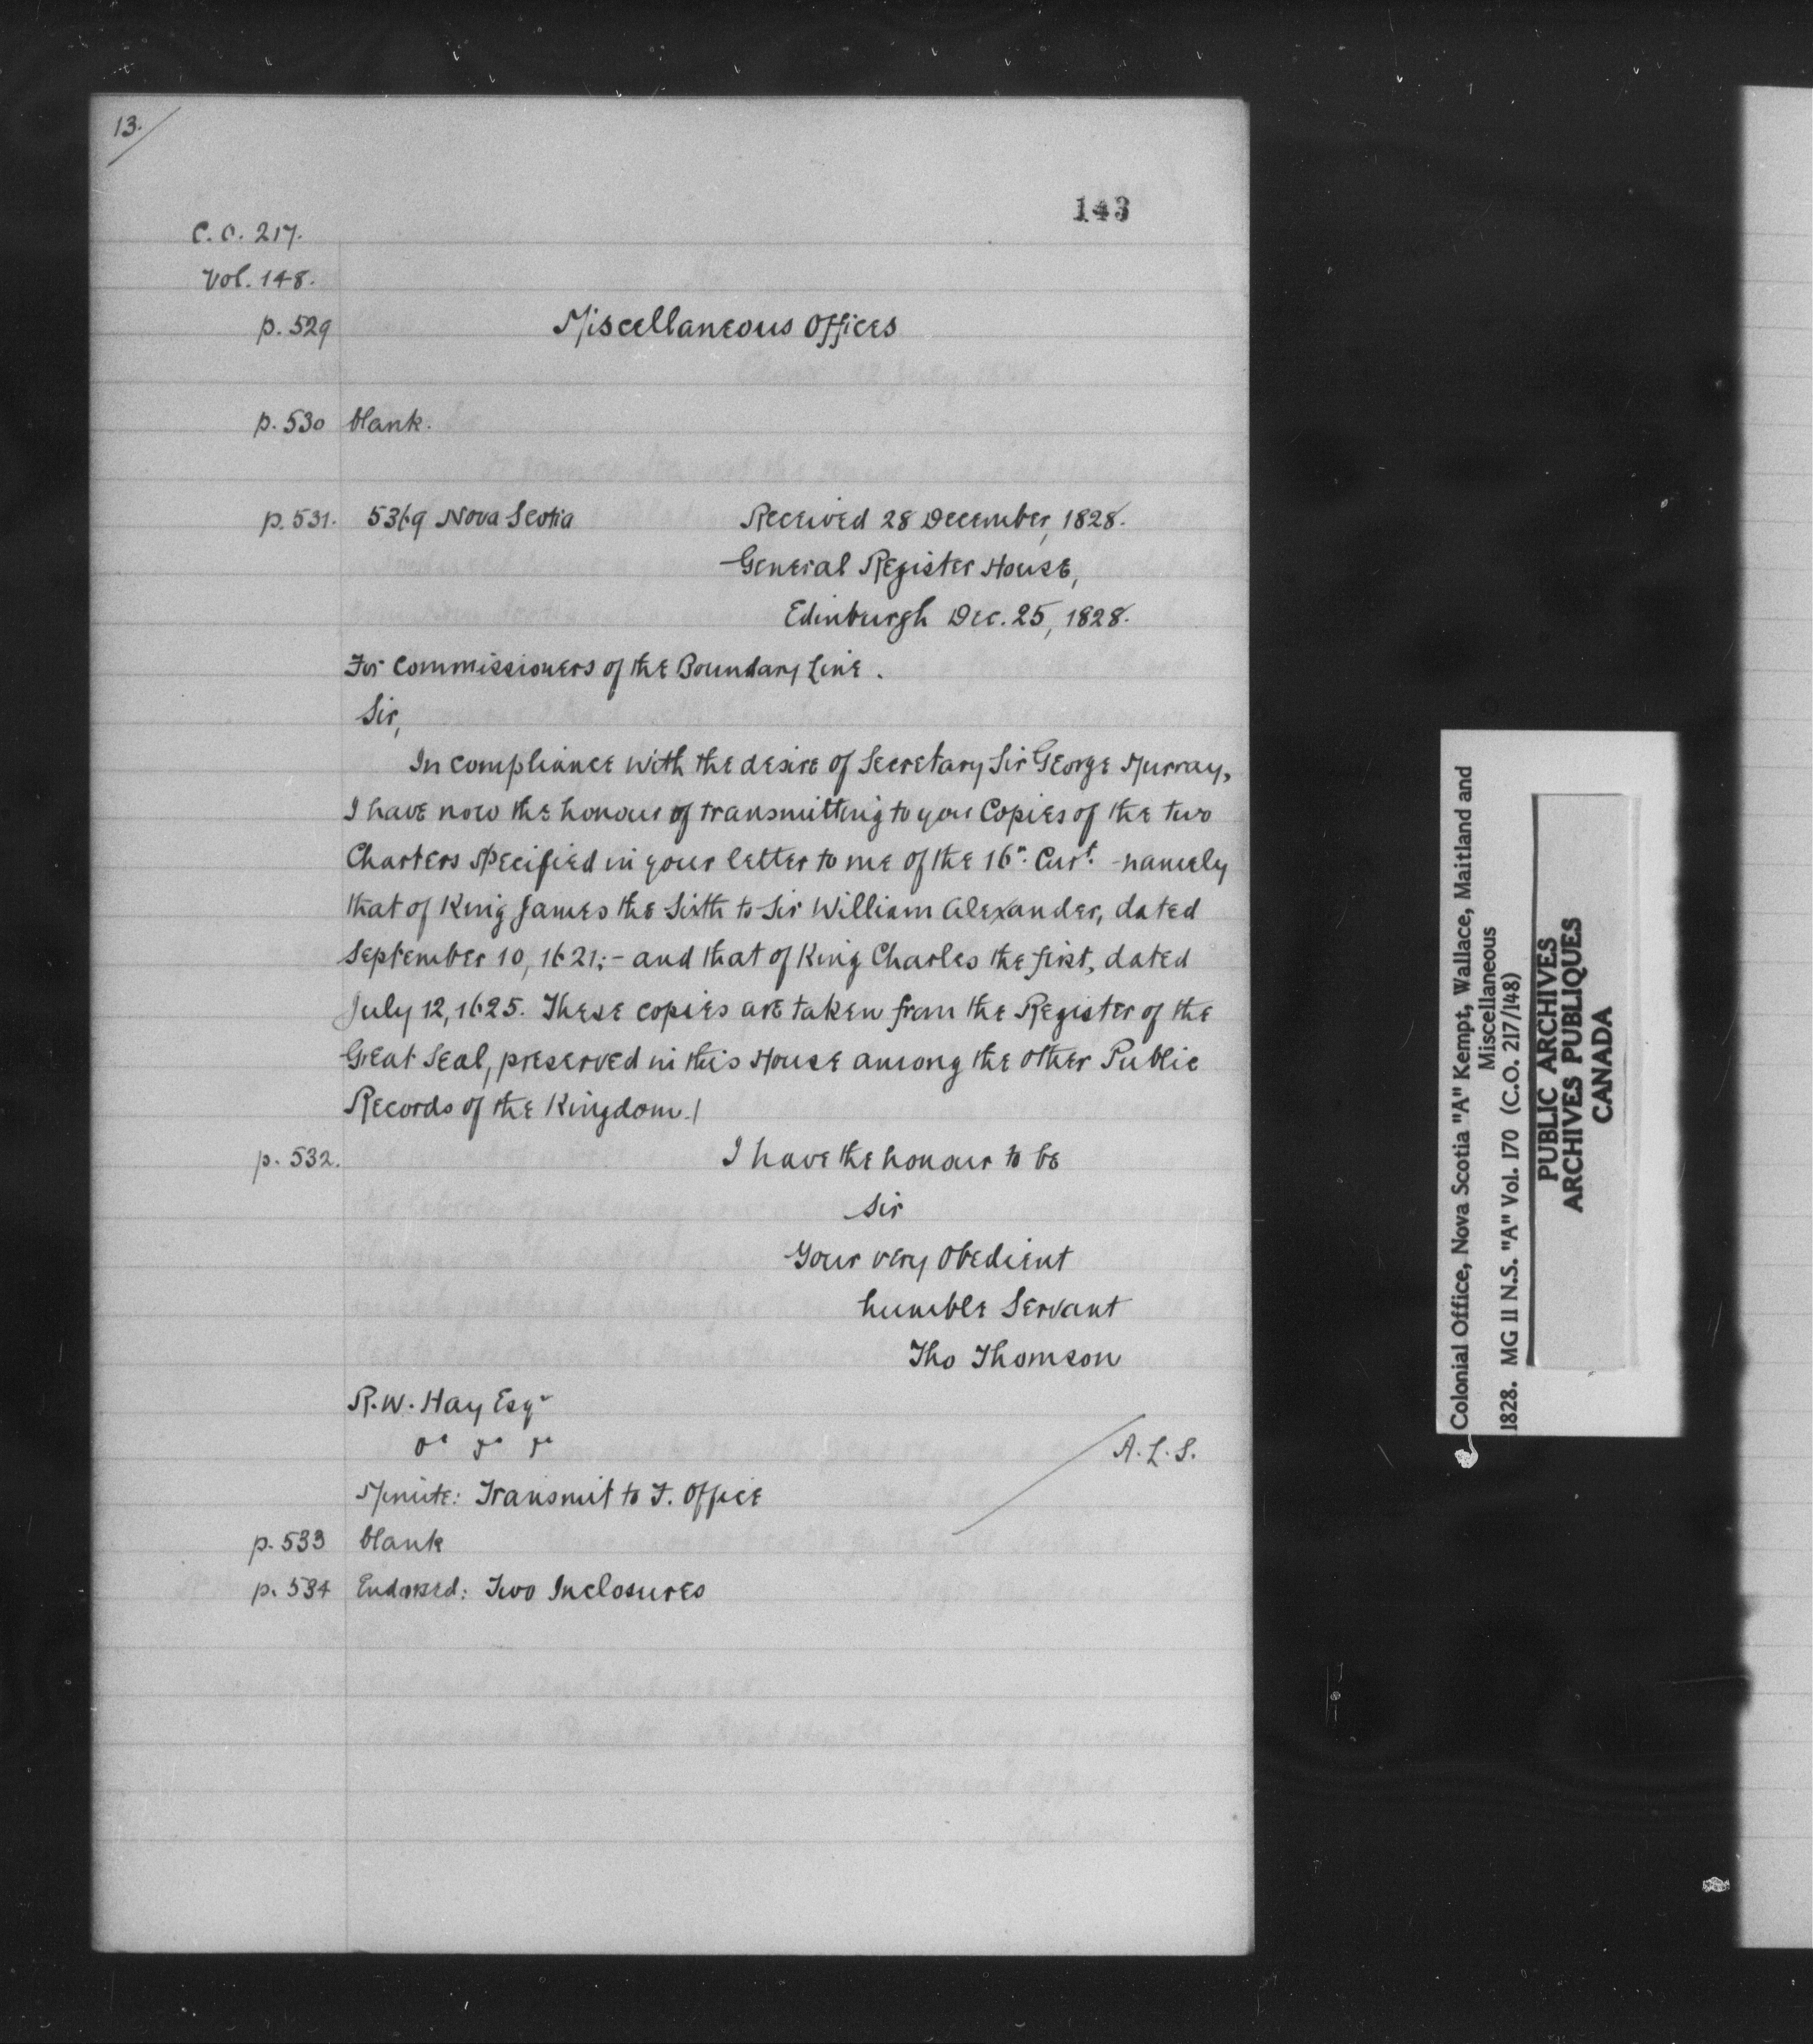 13.
143
C.O. 217.
Vol. 148.
p. 529 Miscellaneous Offices
p. 530 blank.
p. 531. 5369 Nova Scotia Received 28 December, 1828.
General Register House,
Edinburgh Dec. 25, 1828.
For Commissioners of the Boundary Line.
Sir,
In compliance with the desire of Secretary Sir George Murray,
I have now the honour of transmitting to you Copies of the two
Charters specified in your letter to me of the 16" Curt. - namely
that of King James the Sixth to Sir William Alexander, dated
September 10, 1621;- and that of King Charles the first, dated
July 12, 1625. These copies are taken from the Register of the
Great Seal, preserved in this House among the other Public
Records of the Kingdom./
p. 532. I have the honour to be
Sir
Your very Obedient
humble Servant
Tho Thomson
R.W. Hay Esqr
A.L.S.
Minute: Transmit to F. Office
p. 533 blank
p. 534 Endorsed: Two Inclosures
Colonial Office, Nova Scotia "A" Kempt, Wallace, Maitland and
Miscellaneous
1828. MG 11 N.S. "A" Vol. 170 (C.O. 217/148)
PUBLIC ARCHIVES
ARCHIVES PUBLIQUES
CANADA